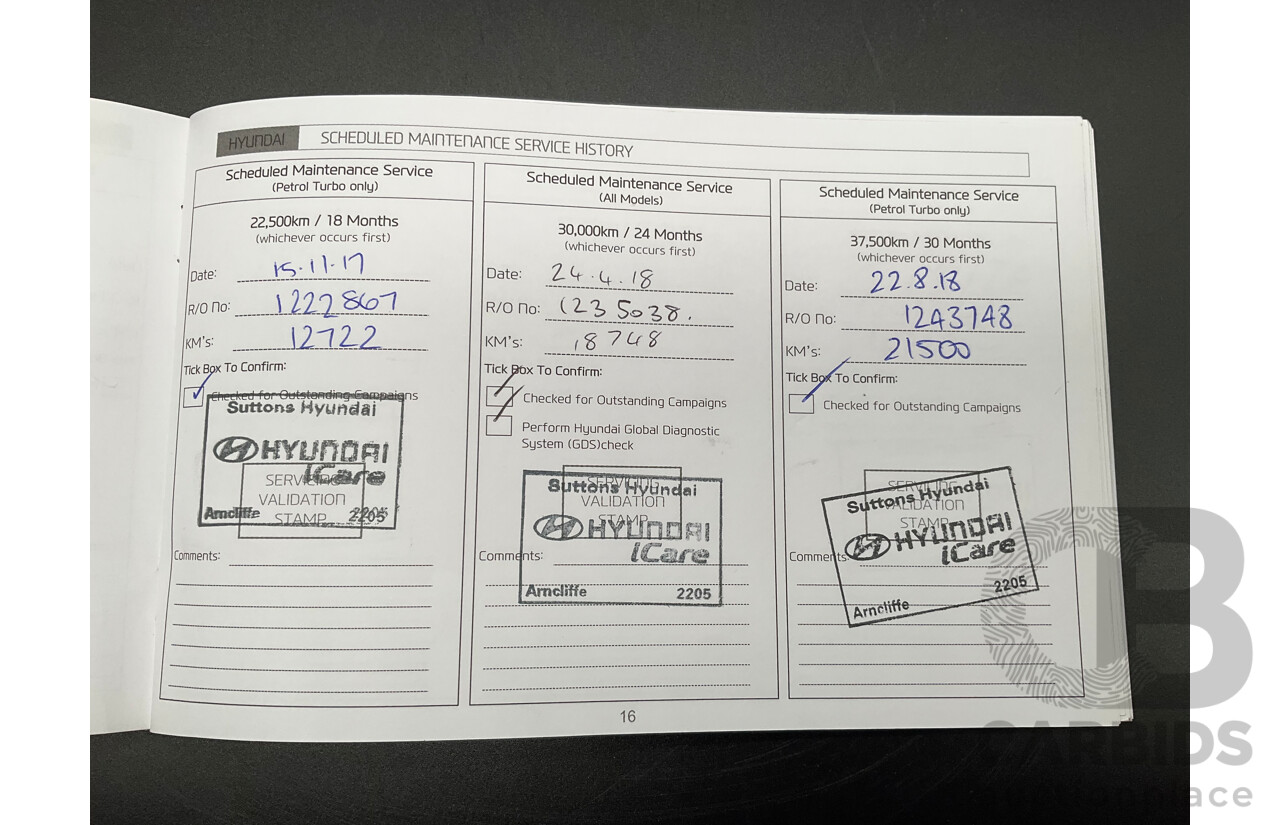 HYUNDAI SCHEDULED MAINTENANCE SERVICE HISTORY
Scheduled Maintenance Service
(Petrol Turbo only)
22,500km / 18 Months
(whichever occurs first)
Date: 15.11.17
R/O No: 1222867
KM's: 12722
Tick Box To Confirm:
Checked for Outstanding Campaigns
Suttons Hyundai
HYUNDAI
iCare
SERVICING
VALIDATION
STAMP
Arncliffe 2205
Comments:
Scheduled Maintenance Service
(All Models)
30,000km / 24 Months
(whichever occurs first)
Date: 24.4.18
R/O No: 1235038.
KM's: 18748
Tick Box To Confirm:
Checked for Outstanding Campaigns
Perform Hyundai Global Diagnostic
System (GDS)check
SERVICING
Suttons Hyundai
VALIDATION
STAMP
HYUNDAI
iCare
Comments:
Arncliffe 2205
Scheduled Maintenance Service
(Petrol Turbo only)
37,500km / 30 Months
(whichever occurs first)
Date: 22.8.18
R/O No: 1243748
KM's: 21500
Tick Box To Confirm:
Checked for Outstanding Campaigns
SERVICING
Suttons Hyundai
VALIDATION
STAMP
HYUNDAI
iCare
Comments:
Arncliffe 2205
16
CARBIDS